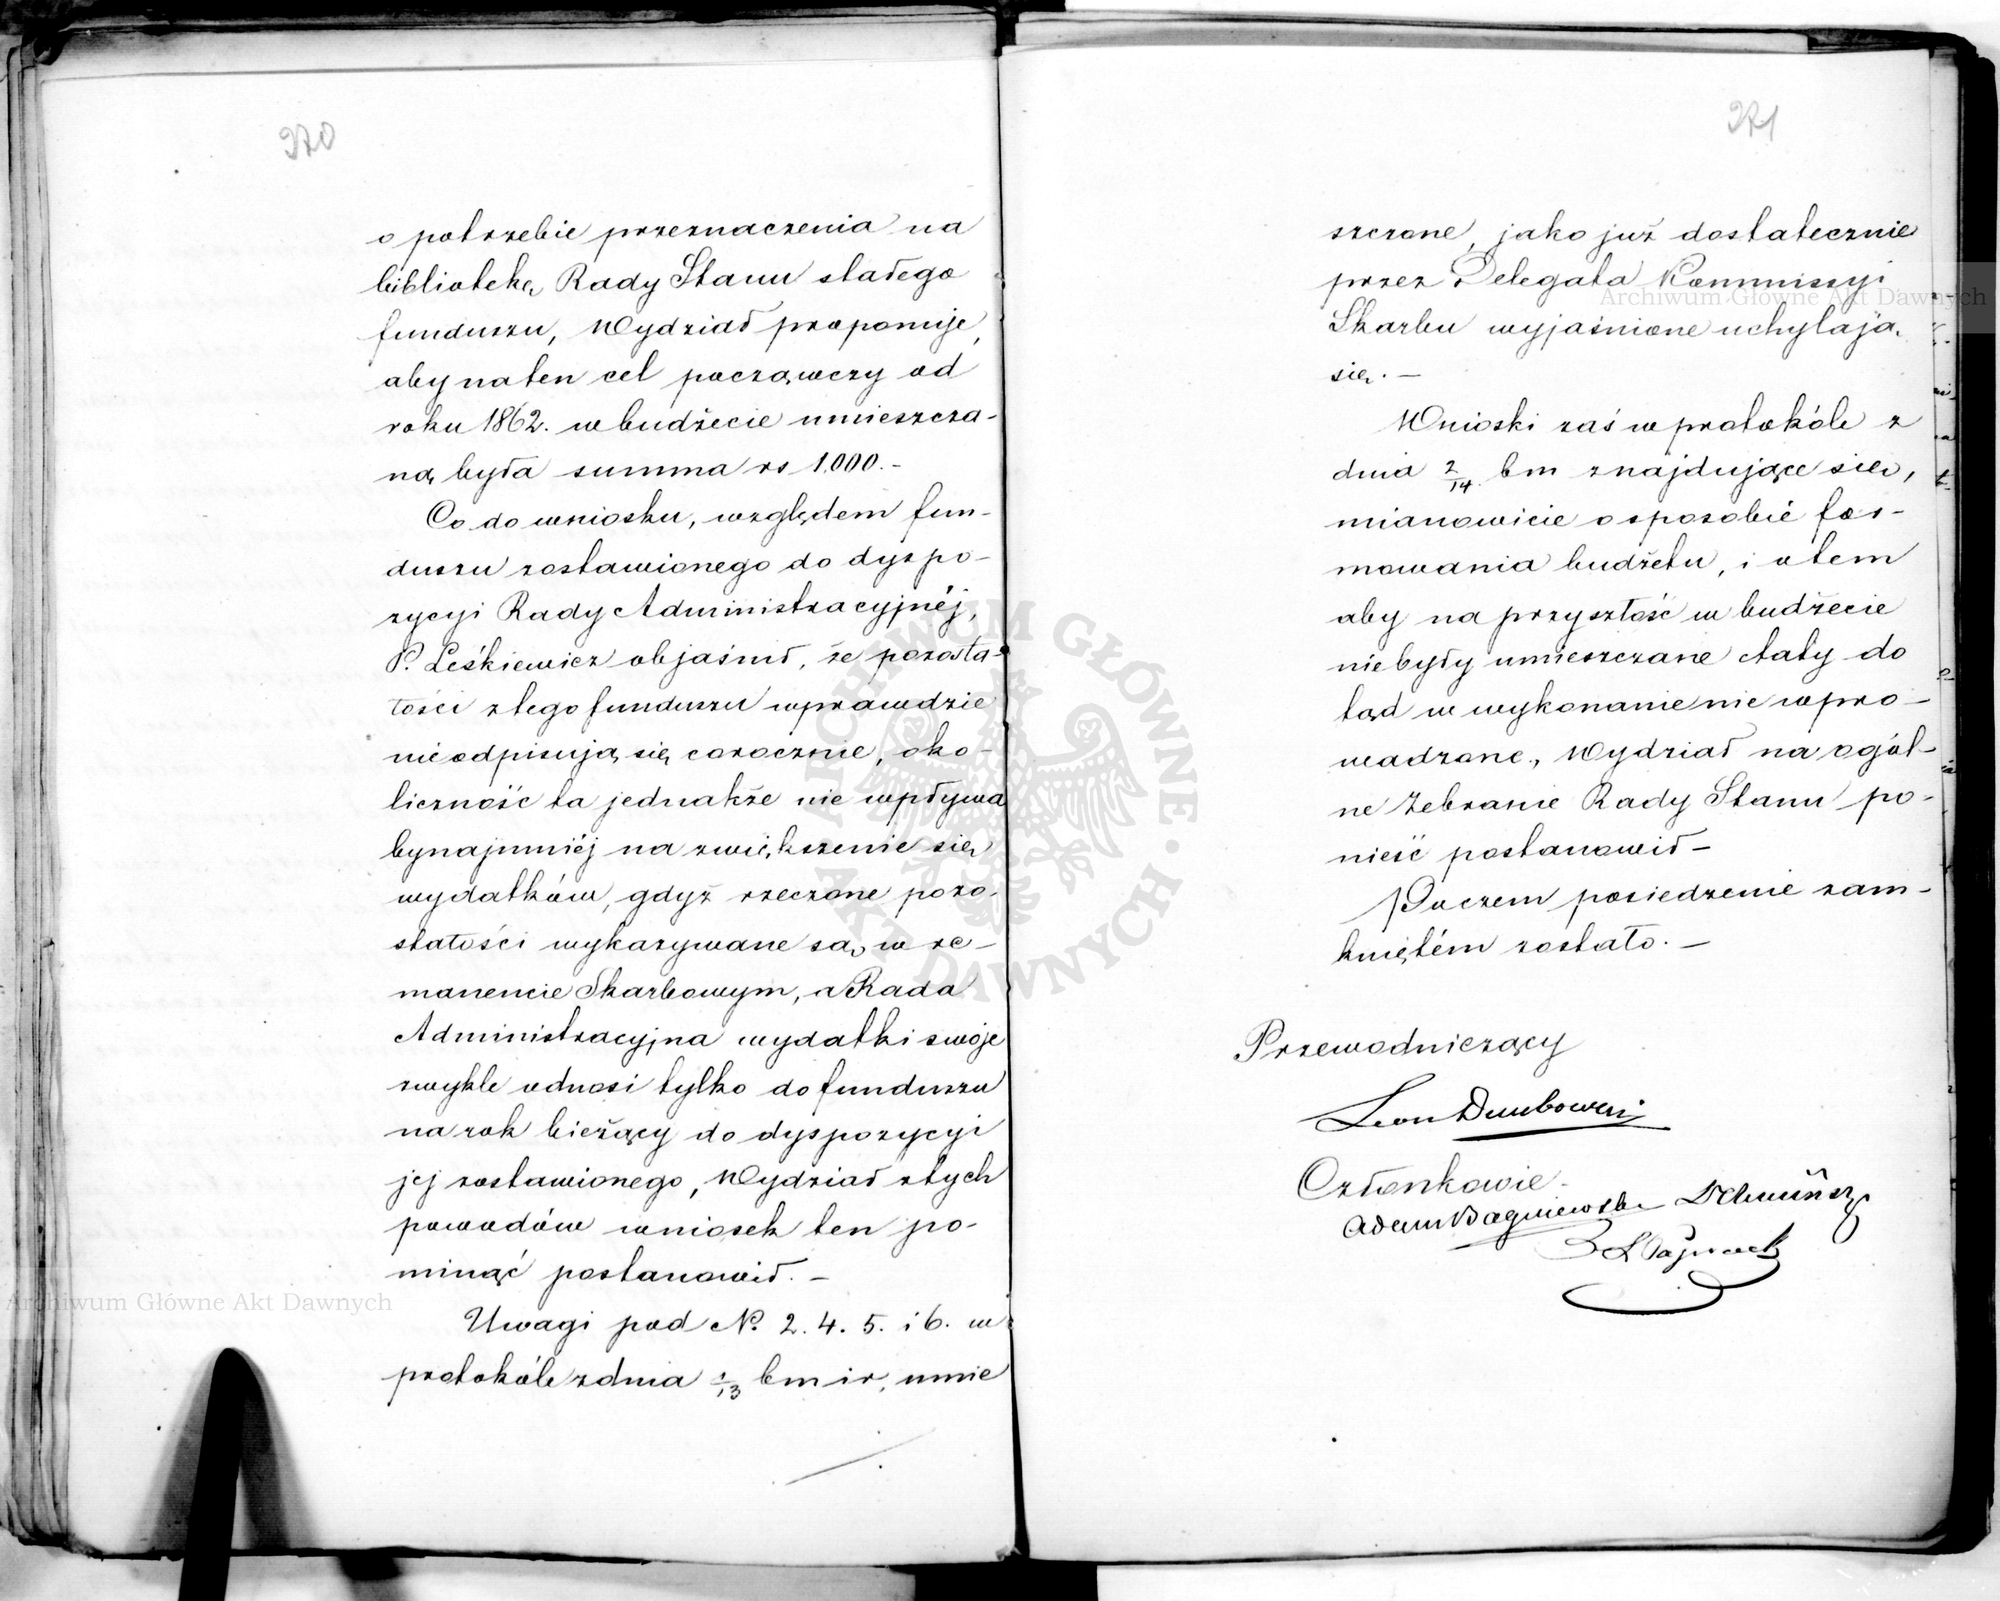 370
o potrzebie przeznaczenia na
bibliotekę Rady Stanu stałego
funduszu, Wydział proponuje,
aby na ten cel począwszy od
roku 1862. w budżecie umieszcza-
ną była summa rs 1.000.-
Co do wniosku, względem fun-
duszu zostawionego do dyspo-
zycyi Rady Administracyjnéj,
P. Leśkiewicz objaśnił, że pozosta-
łości z tego funduszu wprawdzie
nieodpisują się corocznie, oko-
liczność ta jednakże nie wpływa
bynajmniéj na zwiększenie się
wydatków, gdyż rzeczone pozo-
stałości wykazywane są w re-
manencie Skarbowym, a Rada
Administracyjna wydatki swoje
zwykle odnosi tylko do funduszu
na rok bieżący do dyspozycyi
jej zostawionego, Wydział z tych
powodów wniosek ten po-
minąć postanowił. -
Uwagi pod No. 2. 4. 5. i 6. w
protokóle z dnia 1/13 bm i r, umie
371
szczone, jako już dostatecznie
przez Delegata Kommissyi
Skarbu wyjaśnione uchylają
się. -
Wnioski zaś w protokóle z
dnia 2/14 bm znajdujące się,
mianowicie o sposobie for-
mowania budżetu, i o tem
aby na przyszłość w budżecie
niebyły umieszczane etaty do
tąd w wykonanie nie wpro-
wadzone, Wydział na ogól-
ne Zebranie Rady Stanu po-
nieść postanowił -
Poczem posiedzenie zam-
kniętém zostało. -
Przewodniczący
Leon Dembowski
Członkowie
Adam Bagniewski
Archiwum Główne Akt Dawnych
Archiwum Główne Akt Dawnych
ARCHIWUM GŁÓWNE AKT DAWNYCH